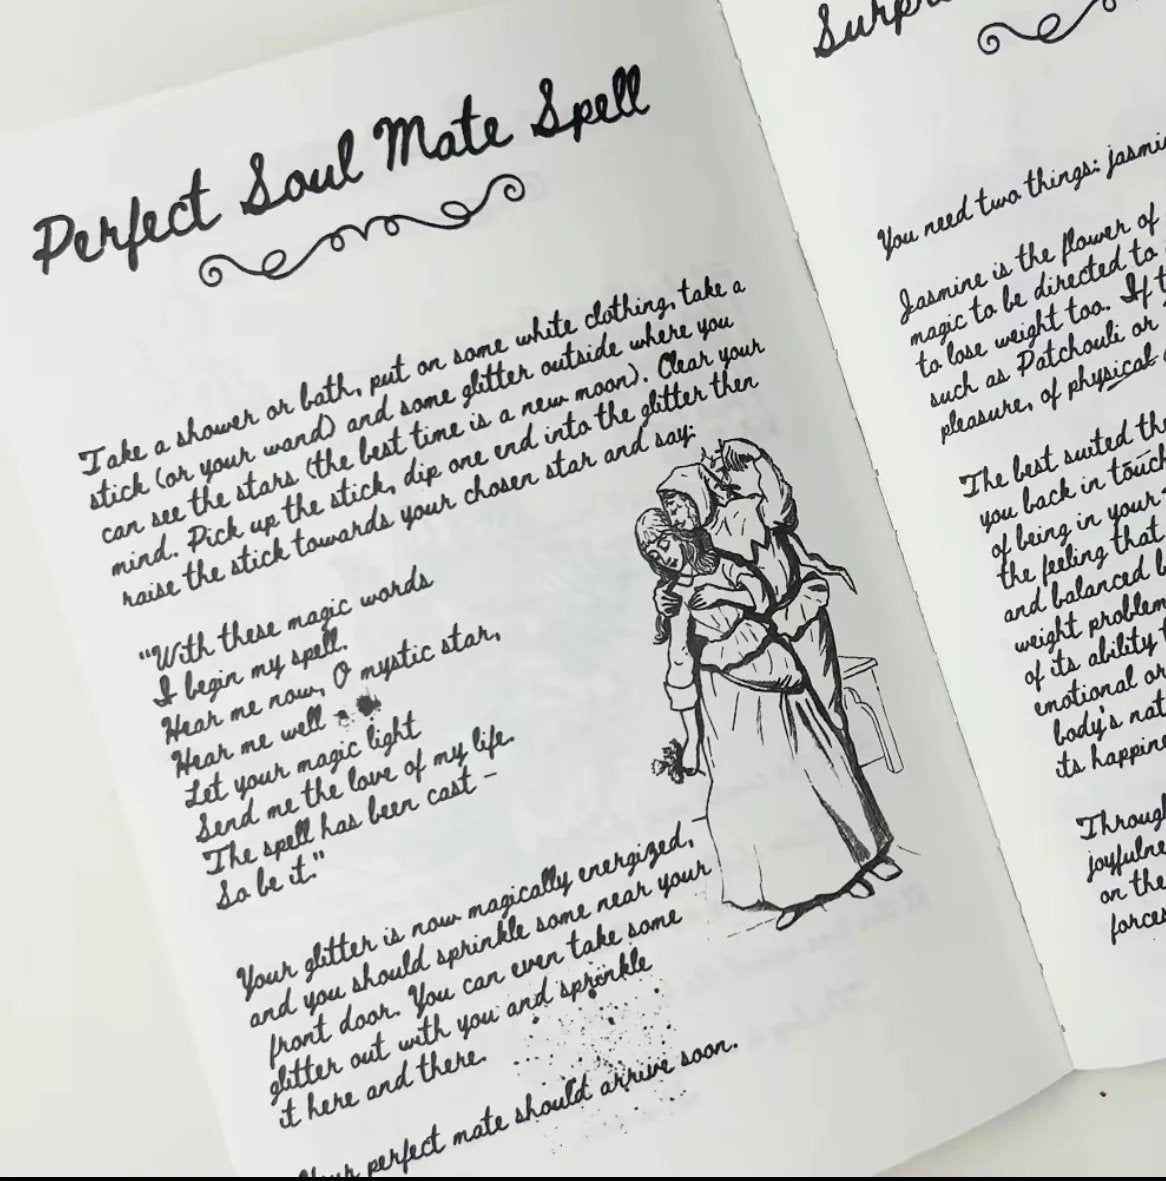 Perfect Soul Mate Spell
Take a shower or bath, put on some white clothing, take a
stick (or your wand) and some glitter outside where you
can see the stars (the best time is a new moon). Clear your
mind. Pick up the stick, dip one end into the glitter then
raise the stick towards your chosen star and say:
"With these magic words
I begin my spell.
Hear me now, O mystic star,
Hear me well -
Let your magic light
Send me the love of my life.
The spell has been cast -
So be it."
Your glitter is now magically energized,
and you should sprinkle some near your
front door. You can even take some
glitter out with you and sprinkle
it here and there.
Your perfect mate should arrive soon.
You need two things:
Jasmine is the flower of
magic to be directed to
to lose weight too. If
such as Patchouli or
pleasure, of physical
The best suited
you back in touch
of being in your
the feeling that
and balanced
weight
of its ability
emotional or
body's
its
on the
forces